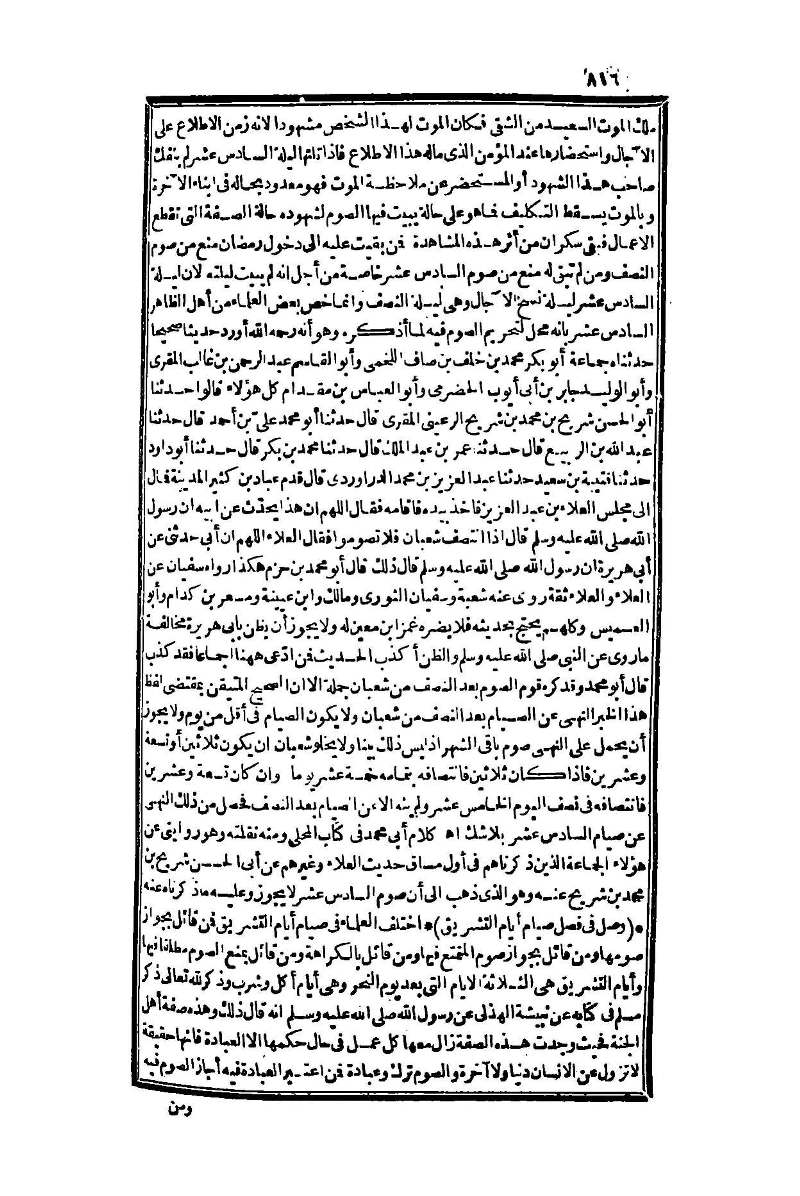 ٨١٦
ملك الموت السعيد من الشقي فكان الموت لهذا الشخص مشهودا لانه زمن الاطلاع على
الآجال واستحضارها عند المؤمن الذي ماله هذا الاطلاع فاذا تام ليلة السادس عشر لم ينفك
صاحب هذا الشهود أو المستحضر عن ملاحظة الموت فهو معدود بحاله في ابناء الآخرة
وبالموت يسقط التكليف فما هو على حالة يبيت فيها الصوم لشهوده حالة الصفة التي تقطع
الاعمال فبقى سكران من أثر هذه المشاهدة فمن بقيت عليه الى دخول رمضان منع من صوم
النصف ومن لم تبق له منع من صوم السادس عشر خاصة من أجل انه لم يبيت ليلته لان ليلة
السادس عشر ليلة نسخ الآجال وهي ليلة النصف وانما خص بعض العلماء من أهل الظاهر
السادس عشر بانه محل لتحريم الصوم فيه لما أذكره وهو أنه رحمه الله أورد حديثا صحيحا
حدثناه جماعة أبو بكر محمد بن خلف بن صاف اللخمى وأبو القاسم عبد الرحمن بن غالب المقرى
وأبو الوليد جابر بن أبي أيوب الحضرمى وأبو العباس بن مقدام كل هؤلاء قالوا حدثنا
أبو الحسن شريح بن محمد بن شريح الرعينى المقرى قال حدثنا أبو محمد على بن أحمد قال حدثنا
عبد الله بن الربيع قال حدثنا عمر بن عبد الملك قال حدثنا محمد بن بكر قال حدثنا أبو داود
حدثنا قتيبة بن سعيد حدثنا عبد العزيز بن محمد الدراوردى قال قدم عباد بن كثير المدينة فمال
الى مجلس العلاء بن عبد العزيز فاخذ بيده فاقامه فقال اللهم ان هذا يحدث عن ابيه ان رسول
الله صلى الله عليه وسلم قال اذا انتصف شعبان فلا تصوموا فقال العلاء اللهم ان أبى حدثنى عن
أبى هريرة ان رسول الله صلى الله عليه وسلم قال ذلك قال أبو محمد بن حزم هكذا رواه سفيان عن
العلاء والعلاء ثقة روى عنه شعبة وسفيان الثورى ومالك وابن عيينة ومسعر بن كدام وأبو
العميس وكلهم يحتج بحديثه فلا يضره غمز ابن معين له ولا يجوز أن يظن بابى هريرة مخالفة
ما روى عن النبى صلى الله عليه وسلم والظن أكذب الحديث فمن ادعى ههنا اجماعا فقد كذب
قال أبو محمد وقد كره قوم الصوم بعد النصف من شعبان جملة الا ان الصحيح المتيقن بمقتضى لفظ
هذا الخبر النهى عن الصيام بعد النصف من شعبان ولا يكون الصيام فى أقل من يوم ولا يجوز
أن يحمل على النهى صوم باقى الشهر اذ ليس ذلك بينا ولا يخلو شعبان ان يكون ثلاثين أو تسعة
وعشرين فاذا كان ثلاثين فانتصافه بتمامه خمسة عشر يوما وان كان تسعة وعشرين
فانتصافه فى نصف اليوم الخامس عشر ولم ينه الا عن الصيام بعد النصف فحصل من ذلك النهى
عن صيام السادس عشر بلا شك اه كلام أبى محمد فى كتاب المحلى ومنه نقلته وهو روايتى عن
هؤلاء الجماعة الذين ذكرناهم فى أول مساق حديث العلاء وغيرهم عن أبى الحسن شريح بن
محمد بن شريح عنه وهو الذى ذهب الى أن صوم السادس عشر لا يجوز وعليه ما ذكرناه عنه
*(وصل فى فصل صيام أيام التشريق)* اختلف العلماء فى صيام أيام التشريق فمن قائل بجواز
صومها ومن قائل بجواز صوم المتمتع فيها ومن قائل بالكراهة ومن قائل بمنع الصوم مطلقا فيها
وأيام التشريق هى الثلاثة الايام التى بعد يوم النحر وهى أيام أكل وشرب وذكر لله تعالى ذكر
مسلم فى كتابه عن نبيشة الهذلى عن رسول الله صلى الله عليه وسلم انه قال ذلك وهذه صفة أهل
الجنة فحيث وجدت هذه الصفة زال معها كل عمل فى حال حكمها الا العبادة فانها حقيقة
لا تزول عن الانسان دنيا ولا آخرة والصوم ترك وعبادة فمن اعتبر العبادة فيه أجاز الصوم فيه
ومن